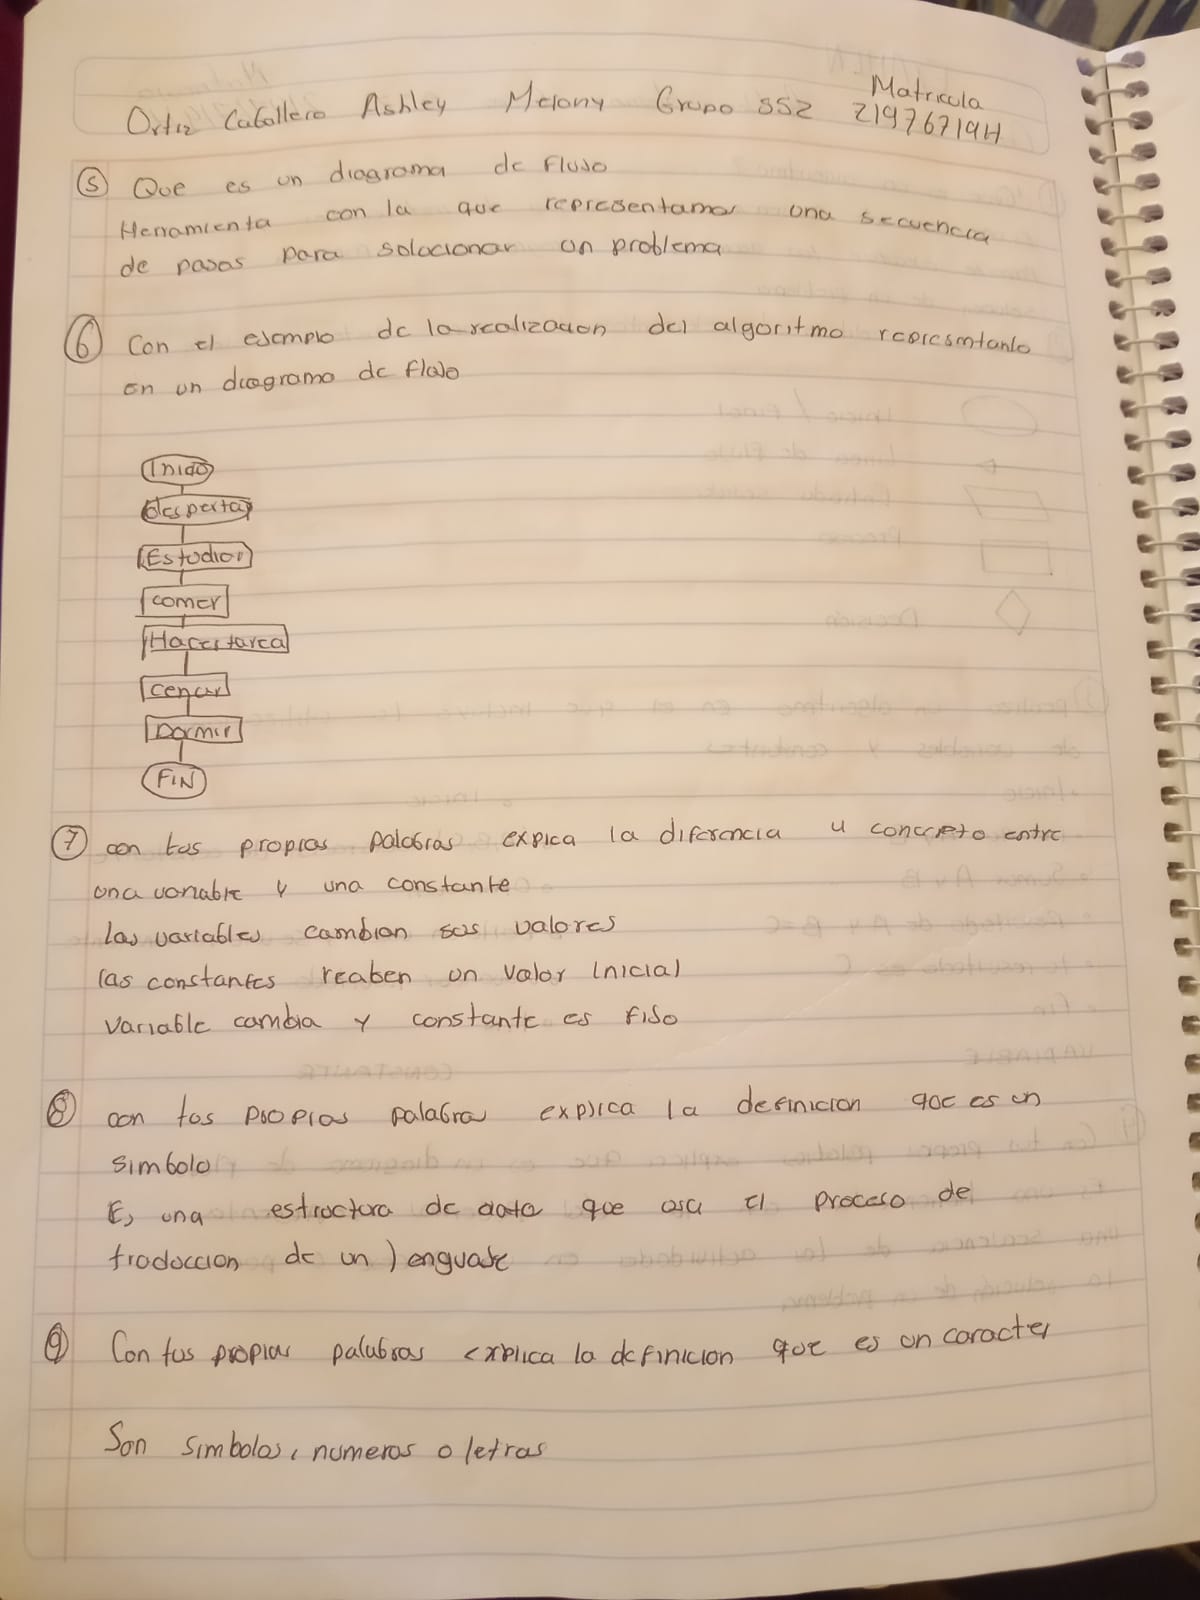 Ortiz Caballero Ashley Melony Grupo 552 Matricula
21976719H
5 Que es un diagrama de flujo
Herramienta con la que representamos una secuencia
de pasos para solucionar un problema
6 Con el ejemplo de la realizacion del algoritmo represmtanlo
en un diagramo de flujo
Inicio
despertar
Estudiar
comer
Hacer tarea
cenar
Dormir
FIN
7 con tus propias palabras explica la diferencia u concepto entre
una variable y una constante
las variables cambian sus valores
las constantes reciben un valor inicial
variable cambia y constante es fijo
8 con tus propias palabras explica la definicion que es un
simbolo
Es una estructura de dato que usa el proceso de
traduccion de un lenguaje
9 Con tus propias palabras explica la definicion que es un caracter
Son simbolos, numeros o letras